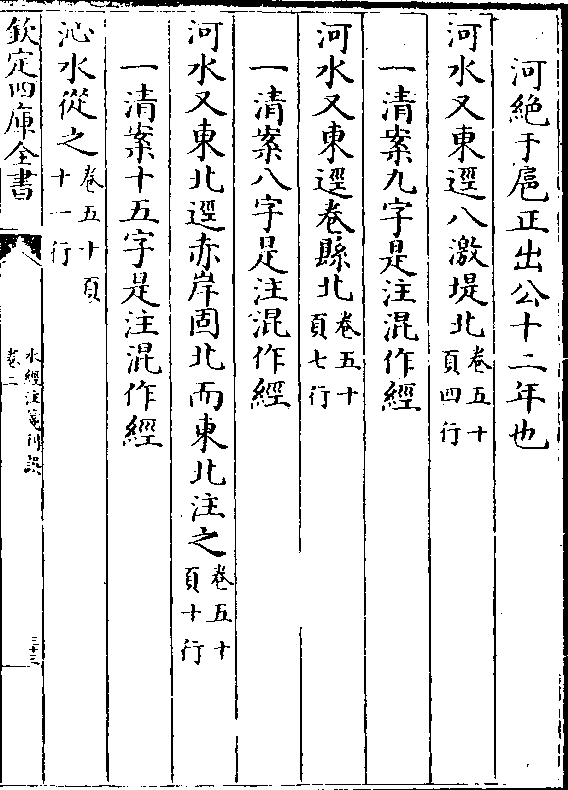 河絶于扈正出公十二年也
河水又東逕八激堤北卷五十頁四行
一清案九字是注混作經
河水又東逕卷縣北卷五十頁七行
一清案八字是注混作經
河水又東北逕赤岸固北而東北注之卷五十頁十行
一清案十五字是注混作經
沁水從之卷五十頁十一行
欽定四庫全書
水經注箋刊誤
卷二
三十三